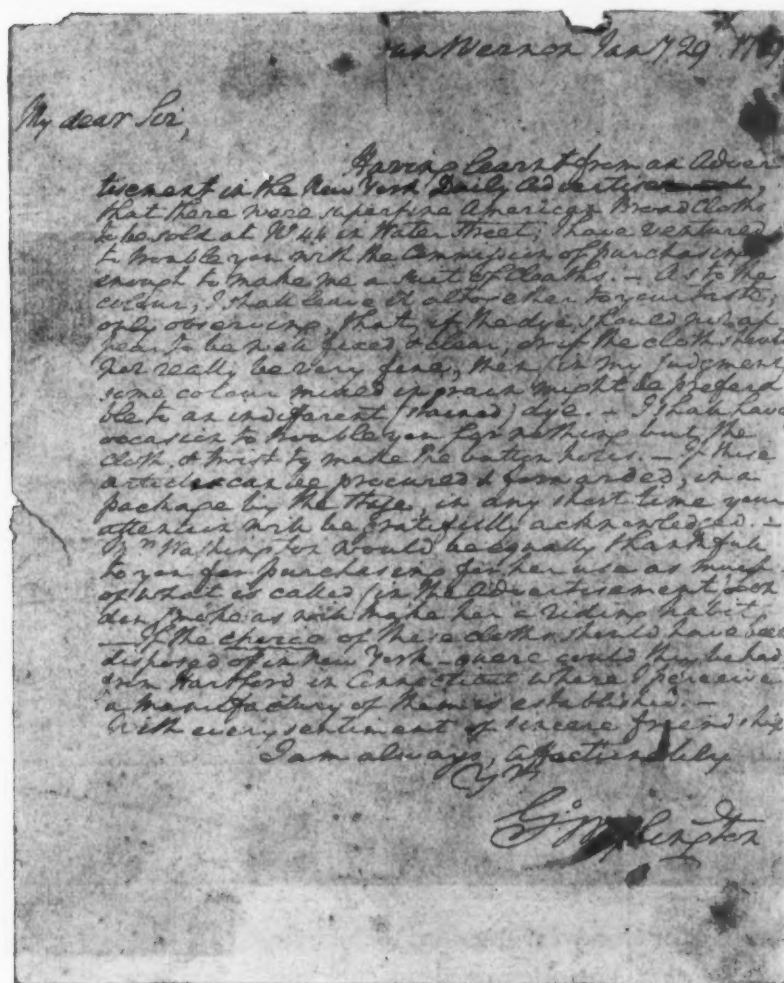 Vernon Jany 29. 178
My dear Sir,
Having learnt from an Adver
tisement in the New York Daily Advertiser,
that there were superfine American Broad Cloths
to be sold at No 44 in Water Street; I have ventured
to trouble you with the Commission of purchasing
enough to make me a suit of Cloaths. — As to the
colour, I shall leave it altogether to your taste
only observing, that, if the dye should not ap
pear to be well fixed & clear, or if the cloth should
not really be very fine, then (in my judgment)
some colour mixed in grain might be prefera
ble to an indifferent (stained) dye. — I shall have
occasion to trouble you for nothing but the
cloth, & twist to make the button holes. — If these
articles can be procured & forwarded, in a
package by the Stage, in any short time your
attention will be gratefully acknowledged. —
Mrs Washington would be equally thankful
to you for purchasing for her use as much
of what is called (in the Advertisement) Lon
don smoke as will make her a riding habit
— If the choice of these cloths should have been
disposed of in New York — quere could they be had
from Hartford in Connecticut where I perceive
a manufactory of them is established. —
With every sentiment of sincere friendship
I am always, affectionately
Yrs
Go Washington